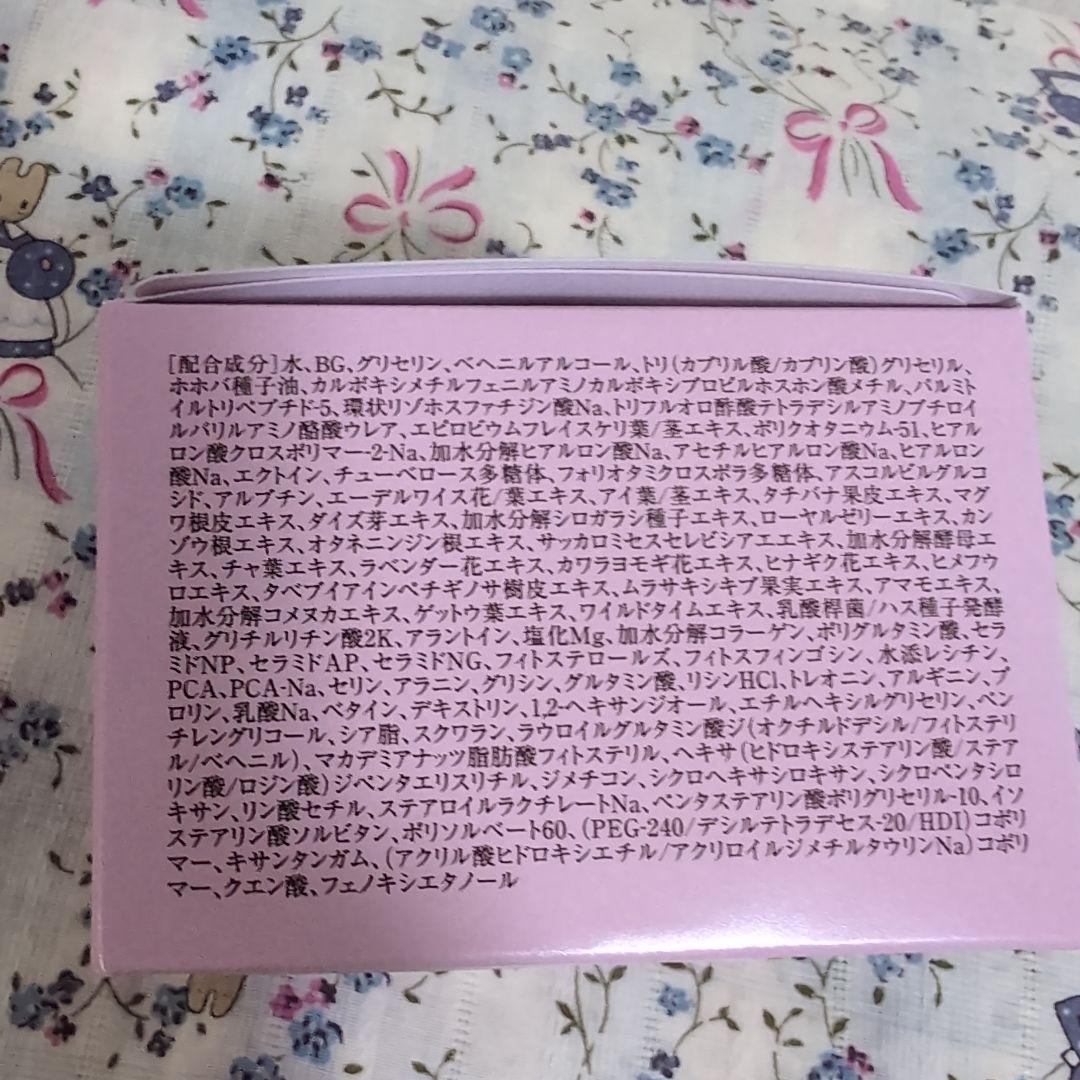 [配合成分]水、BG、グリセリン、ベヘニルアルコール、トリ(カプリル酸/カプリン酸)グリセリル、
ホホバ種子油、カルボキシメチルフェニルアミノカルボキシプロピルホスホン酸メチル、パルミト
イルトリペプチド-5、環状リゾホスファチジン酸Na、トリフルオロ酢酸テトラデシルアミノブチロイ
ルバリルアミノ酪酸ウレア、エピロビウムフレイスケリ葉/茎エキス、ポリクオタニウム-51、ヒアル
ロン酸クロスポリマー-2-Na、加水分解ヒアルロン酸Na、アセチルヒアルロン酸Na、ヒアルロン
酸Na、エクトイン、チューベロース多糖体、フォリオタミクロスポラ多糖体、アスコルビルグルコ
シド、アルブチン、エーデルワイス花/葉エキス、アイ葉/茎エキス、タチバナ果皮エキス、マグ
ワ根皮エキス、ダイズ芽エキス、加水分解シロガラシ種子エキス、ローヤルゼリーエキス、カン
ゾウ根エキス、オタネニンジン根エキス、サッカロミセスセレビシアエエキス、加水分解酵母エ
キス、チャ葉エキス、ラベンダー花エキス、カワラヨモギ花エキス、ヒナギク花エキス、ヒメフウ
ロエキス、タベブイアインペチギノサ樹皮エキス、ムラサキシキブ果実エキス、アマモエキス、
加水分解コメヌカエキス、ゲットウ葉エキス、ワイルドタイムエキス、乳酸桿菌/ハス種子発酵
液、グリチルリチン酸2K、アラントイン、塩化Mg、加水分解コラーゲン、ポリグルタミン酸、セラ
ミドNP、セラミドAP、セラミドNG、フィトステロールズ、フィトスフィンゴシン、水添レシチン、
PCA、PCA-Na、セリン、アラニン、グリシン、グルタミン酸、リシンHCl、トレオニン、アルギニン、プ
ロリン、乳酸Na、ベタイン、デキストリン、1,2-ヘキサンジオール、エチルヘキシルグリセリン、ペン
チレングリコール、シア脂、スクワラン、ラウロイルグルタミン酸ジ(オクチルドデシル/フィトステリ
ル/ベヘニル)、マカデミアナッツ脂肪酸フィトステリル、ヘキサ(ヒドロキシステアリン酸/ステア
リン酸/ロジン酸)ジペンタエリスリチル、ジメチコン、シクロヘキサシロキサン、シクロペンタシロ
キサン、リン酸セチル、ステアロイルラクチレートNa、ペンタステアリン酸ポリグリセリル-10、イソ
ステアリン酸ソルビタン、ポリソルベート60、(PEG-240/デシルテトラデセス-20/HDI)コポリ
マー、キサンタンガム、(アクリル酸ヒドロキシエチル/アクリロイルジメチルタウリンNa)コポリ
マー、クエン酸、フェノキシエタノール